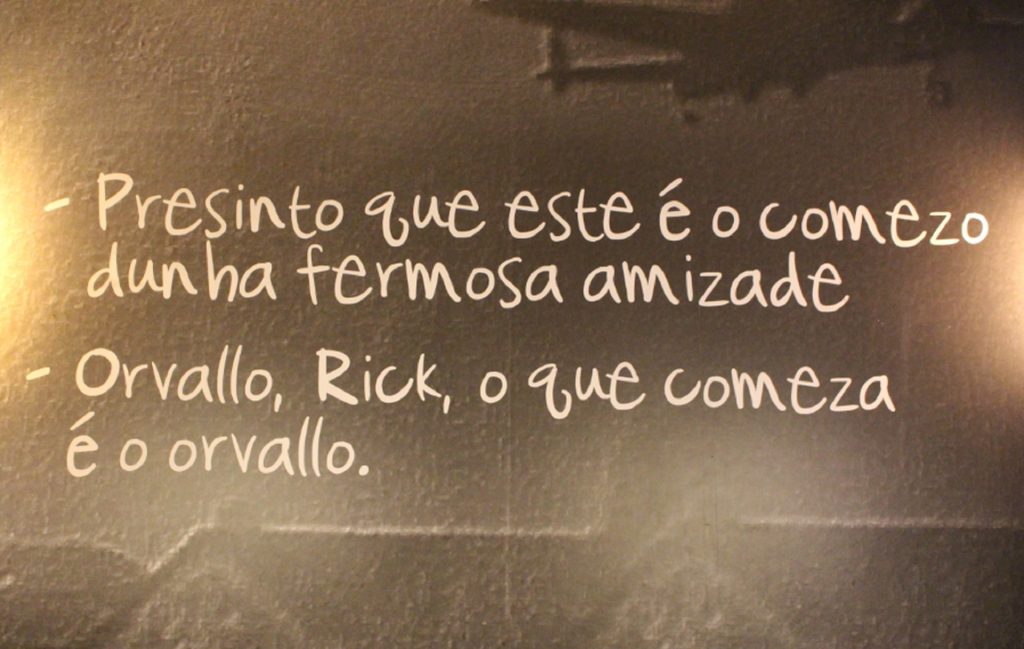 - Presinto que este é o comezo
dunha fermosa amizade
- Orvallo, Rick, o que comeza
é o orvallo.